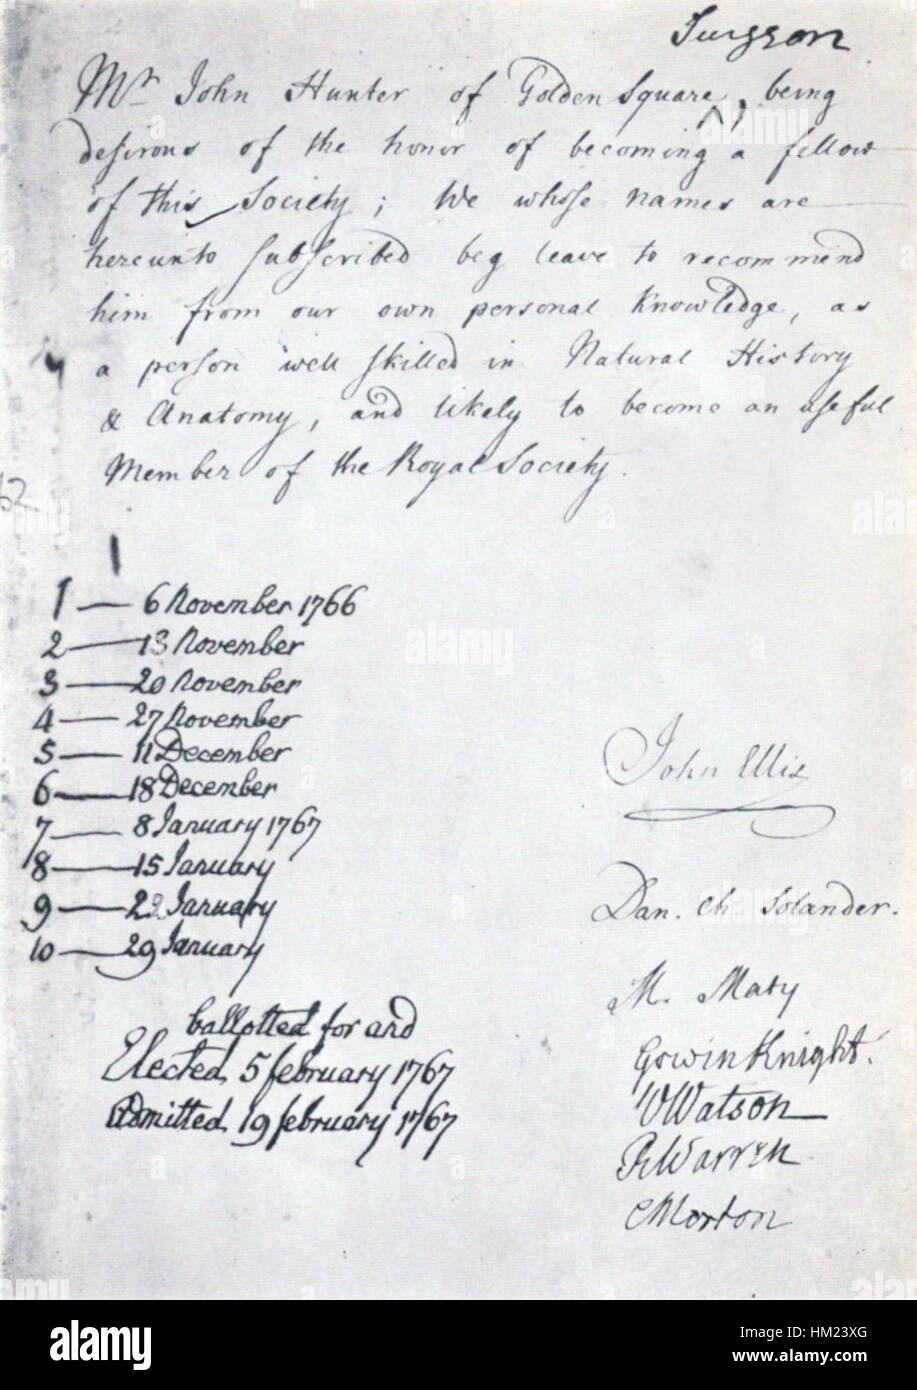 Surgeon
Mr John Hunter of Golden Square ^, being
desirous of the honor of becoming a fellow
of this Society; We whose names are
hereunto subscribed beg leave to recommend
him from our own personal knowledge, as
a person well skilled in Natural History
& Anatomy, and likely to become an useful
Member of the Royal Society.
1 — 6 November 1766
2 — 13 November
3 — 20 November
4 — 27 November
5 — 11 December
6 — 18 December
7 — 8 January 1767
8 — 15 January
9 — 22 January
10 — 29 January
ballotted for and
Elected 5 february 1767
Admitted 19 february 1767
John Ellis
Dan. Ch. Solander.
M. Maty
Gowin Knight.
W Watson
R Warren
C Morton
alamy
Image ID: HM23XG
www.alamy.com